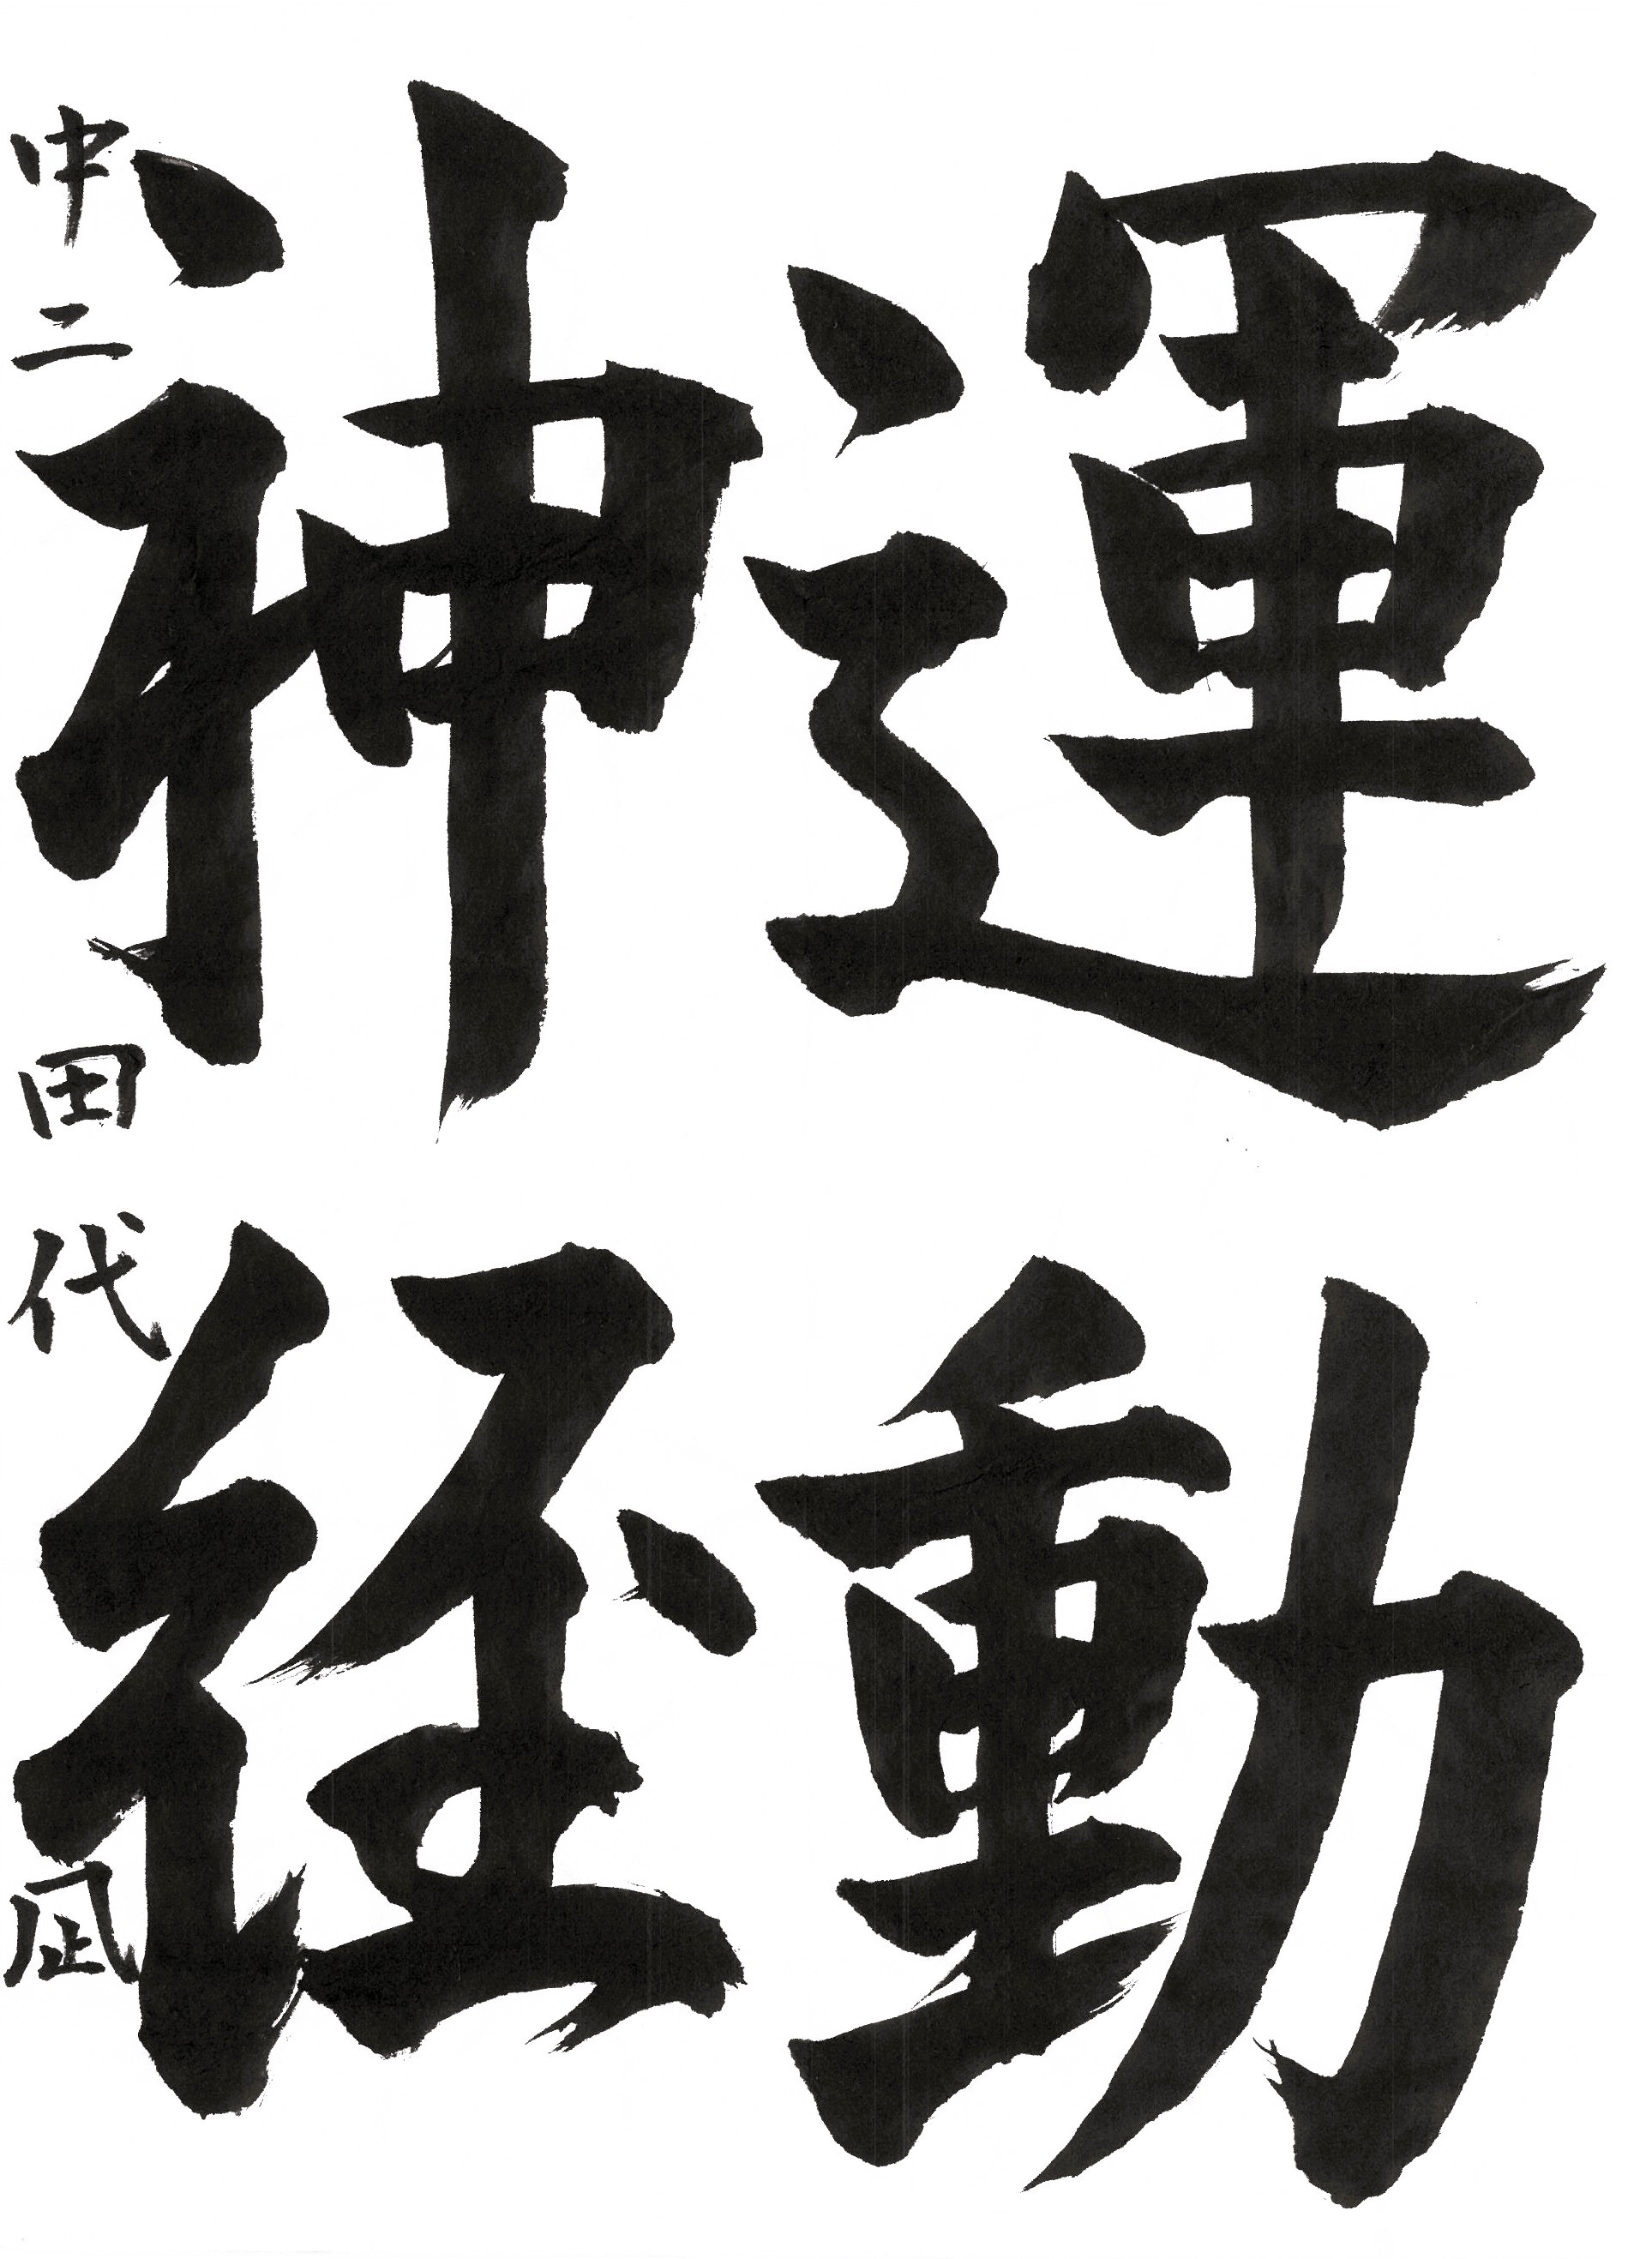 運動
神経
中二 田代 凪